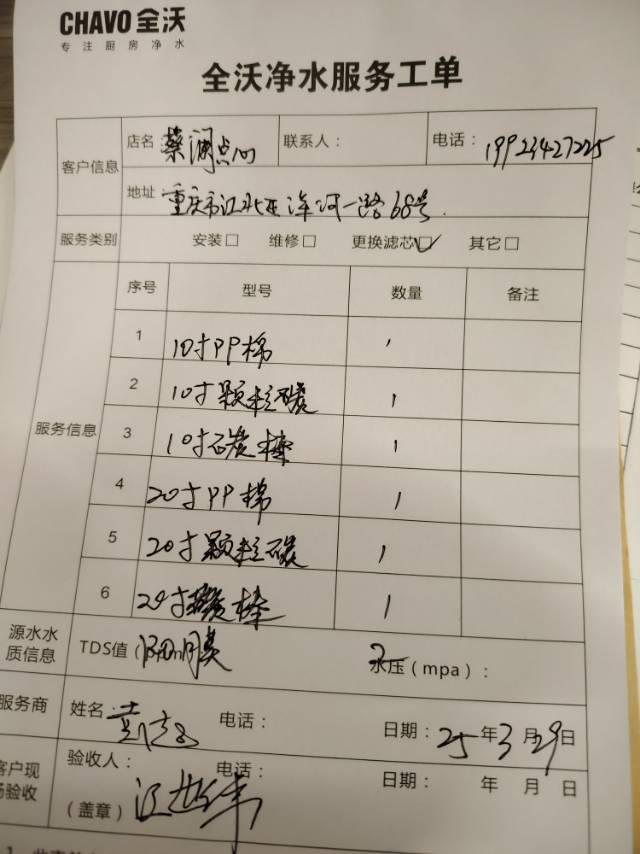 CHAVO 全沃
专注厨房净水
全沃净水服务工单
客户信息 店名 蔡澜点心 联系人： 电话： 19923427225
地址 重庆市江北区洋河一路68号
服务类别 安装□ 维修□ 更换滤芯☑ 其它□
服务信息 序号 型号 数量 备注
1 10寸PP棉 1
2 10寸颗粒碳 1
3 10寸碳棒 1
4 20寸PP棉 1
5 20寸颗粒碳 1
6 20寸碳棒 1
源水水质信息 TDS值（ 水压（mpa）：
服务商 姓名： 电话： 日期：25年3月29日
客户现场验收 验收人： 电话： 日期： 年 月 日
（盖章）